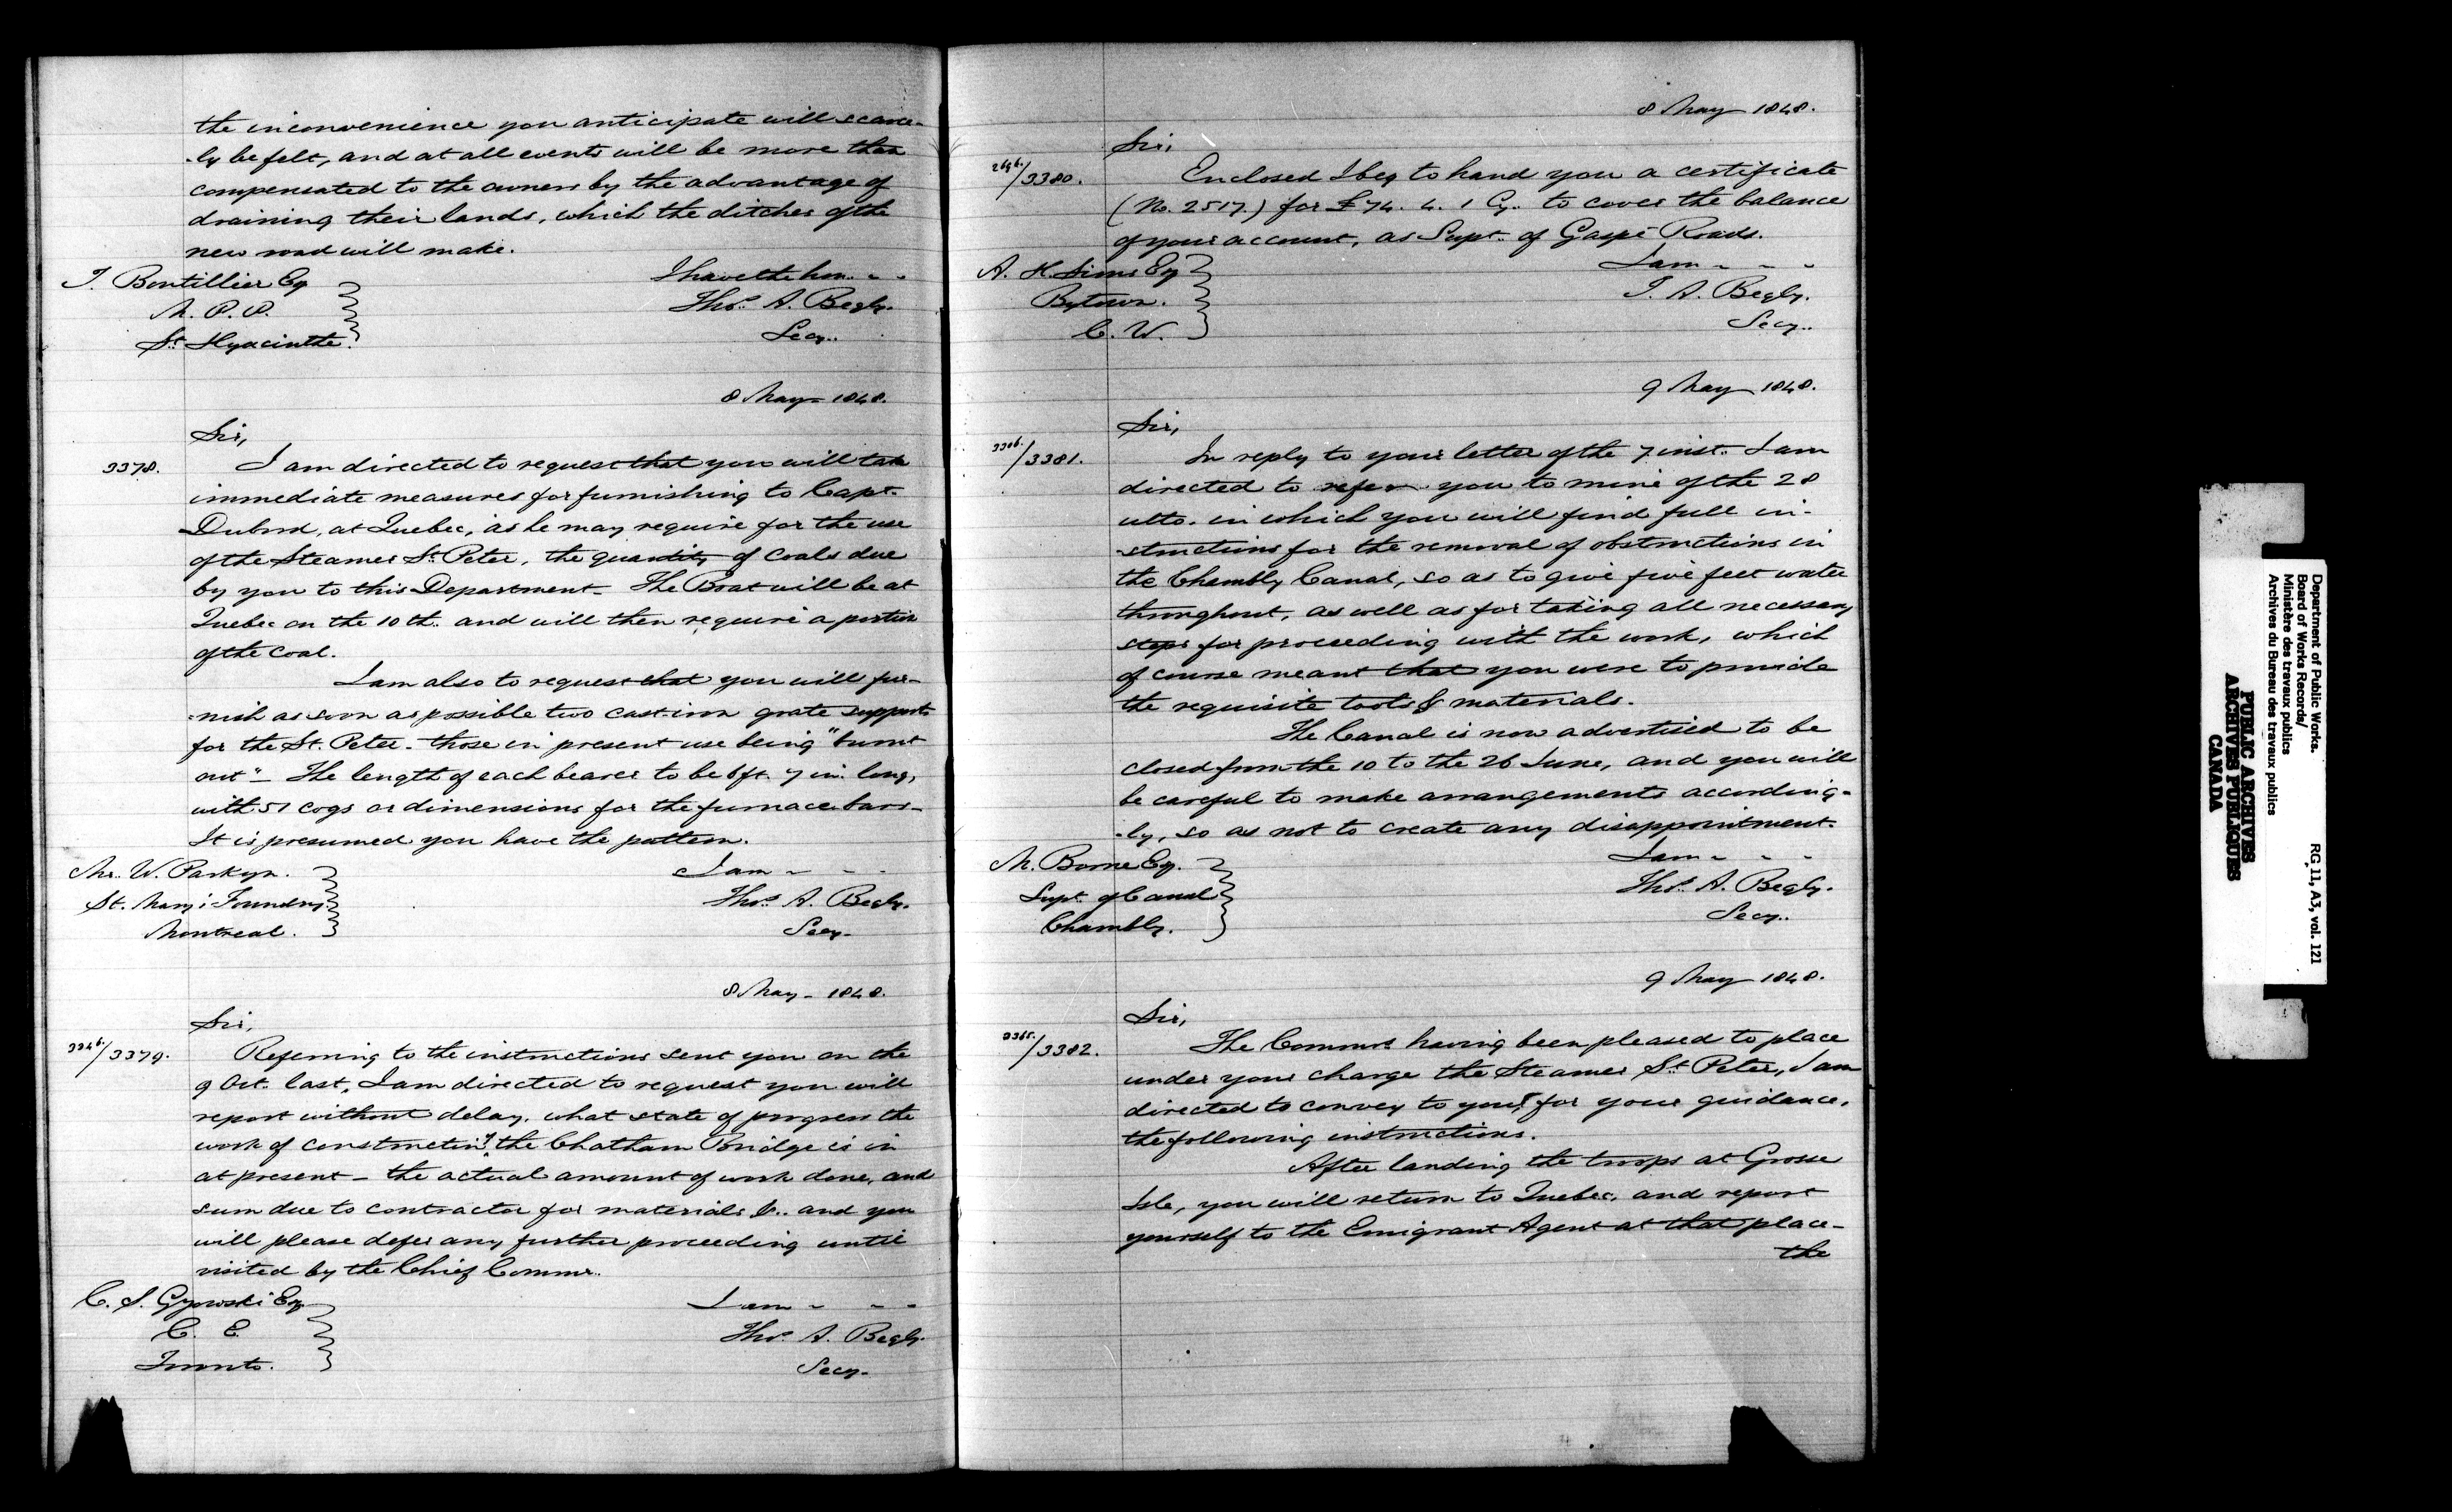 the inconvenience you anticipate will scarce-
-ly be felt, and at all events will be more than
compensated to the owners by the advantage of
draining their lands, which the ditches of the
new road will make.
I have the hon.
T. Boutillier Esq
M. P. P.
St. Hyacinthe.
Thos. A. Begly.
Secy..
8 May - 1848.
Sir,
3378.
I am directed to request that you will take
immediate measures for furnishing to Capt.
Dubord, at Quebec, as he may require for the use
of the Steamer St. Peter, the quantity of Coals due
by you to this Department - The Boat will be at
Quebec on the 10th. and will then require a portion
of the Coal.
I am also to request that you will fur-
-nish as soon as possible two cast-iron grate supports
for the St. Peter - those in present use being "burnt
out" - The length of each bearer to be 6 ft. 7 in. long,
with 51 cogs or dimensions for the furnace bars -
It is presumed you have the pattern.
I am - - -
Mr. W. Parkyn.
St. Mary's Foundry
Montreal.
Thos. A. Begly.
Secy-
8 May - 1848.
Sir,
3346./3379.
Referring to the instructions sent you on the
9 Oct. last, I am directed to request you will
report without delay, what state of progress the
work of constructing the Chatham Bridge is in
at present - the actual amount of work done, and
sum due to contractor for materials &.. and you
will please defer any further proceeding until
visited by the Chief Commr.
I am - - -
C. S. Gzowski Esq
C. E.
Toronto.
Thos. A. Begly.
Secy-
8 May 1848.
Sir,
2696./3380.
Enclosed I beg to hand you a certificate
(No. 2517.) for £74. 4. 1 Cy. to cover the balance
of your account, as Supt. of Gaspé Roads.
I am - - -
A. H. Sims Esq
Bytown.
C. W.
T. A. Begly.
Secy..
9 May 1848.
Sir,
3306./3381.
In reply to your letter of the 7 inst. I am
directed to refer you to mine of the 28
ulto. in which you will find full in-
-structions for the removal of obstructions in
the Chambly Canal, so as to give five feet water
throughout, as well as for taking all necessary
steps for proceeding with the work, which
of course meant that you were to provide
the requisite tools & materials.
The Canal is now advertised to be
closed from the 10 to the 26 June, and you will
be careful to make arrangements according-
-ly, so as not to create any disappointment.
I am - - -
M. Borne Esq.
Supt. of Canal
Chambly.
Thos. A. Begly.
Secy..
9 May 1848.
Sir,
3365./3382.
The Commrs having been pleased to place
under your charge the Steamer St. Peter, I am
directed to convey to you, for your guidance,
the following instructions.
After landing the troops at Grosse
Isle, you will return to Quebec, and report
yourself to the Emigrant Agent at that place -
the
Department of Public Works.
Board of Works Records/
Ministère des travaux publics
Archives du Bureau des travaux publics
RG 11, A3, vol. 121
PUBLIC ARCHIVES
ARCHIVES PUBLIQUES
CANADA